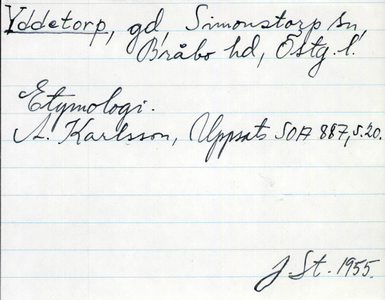 Yddetorp, gd, Simonstorp sn,
Bråbo hd, Östg. l.
Etymologi.
A. Karlsson, Uppsats SOA 887, s. 20.
J St. 1955.